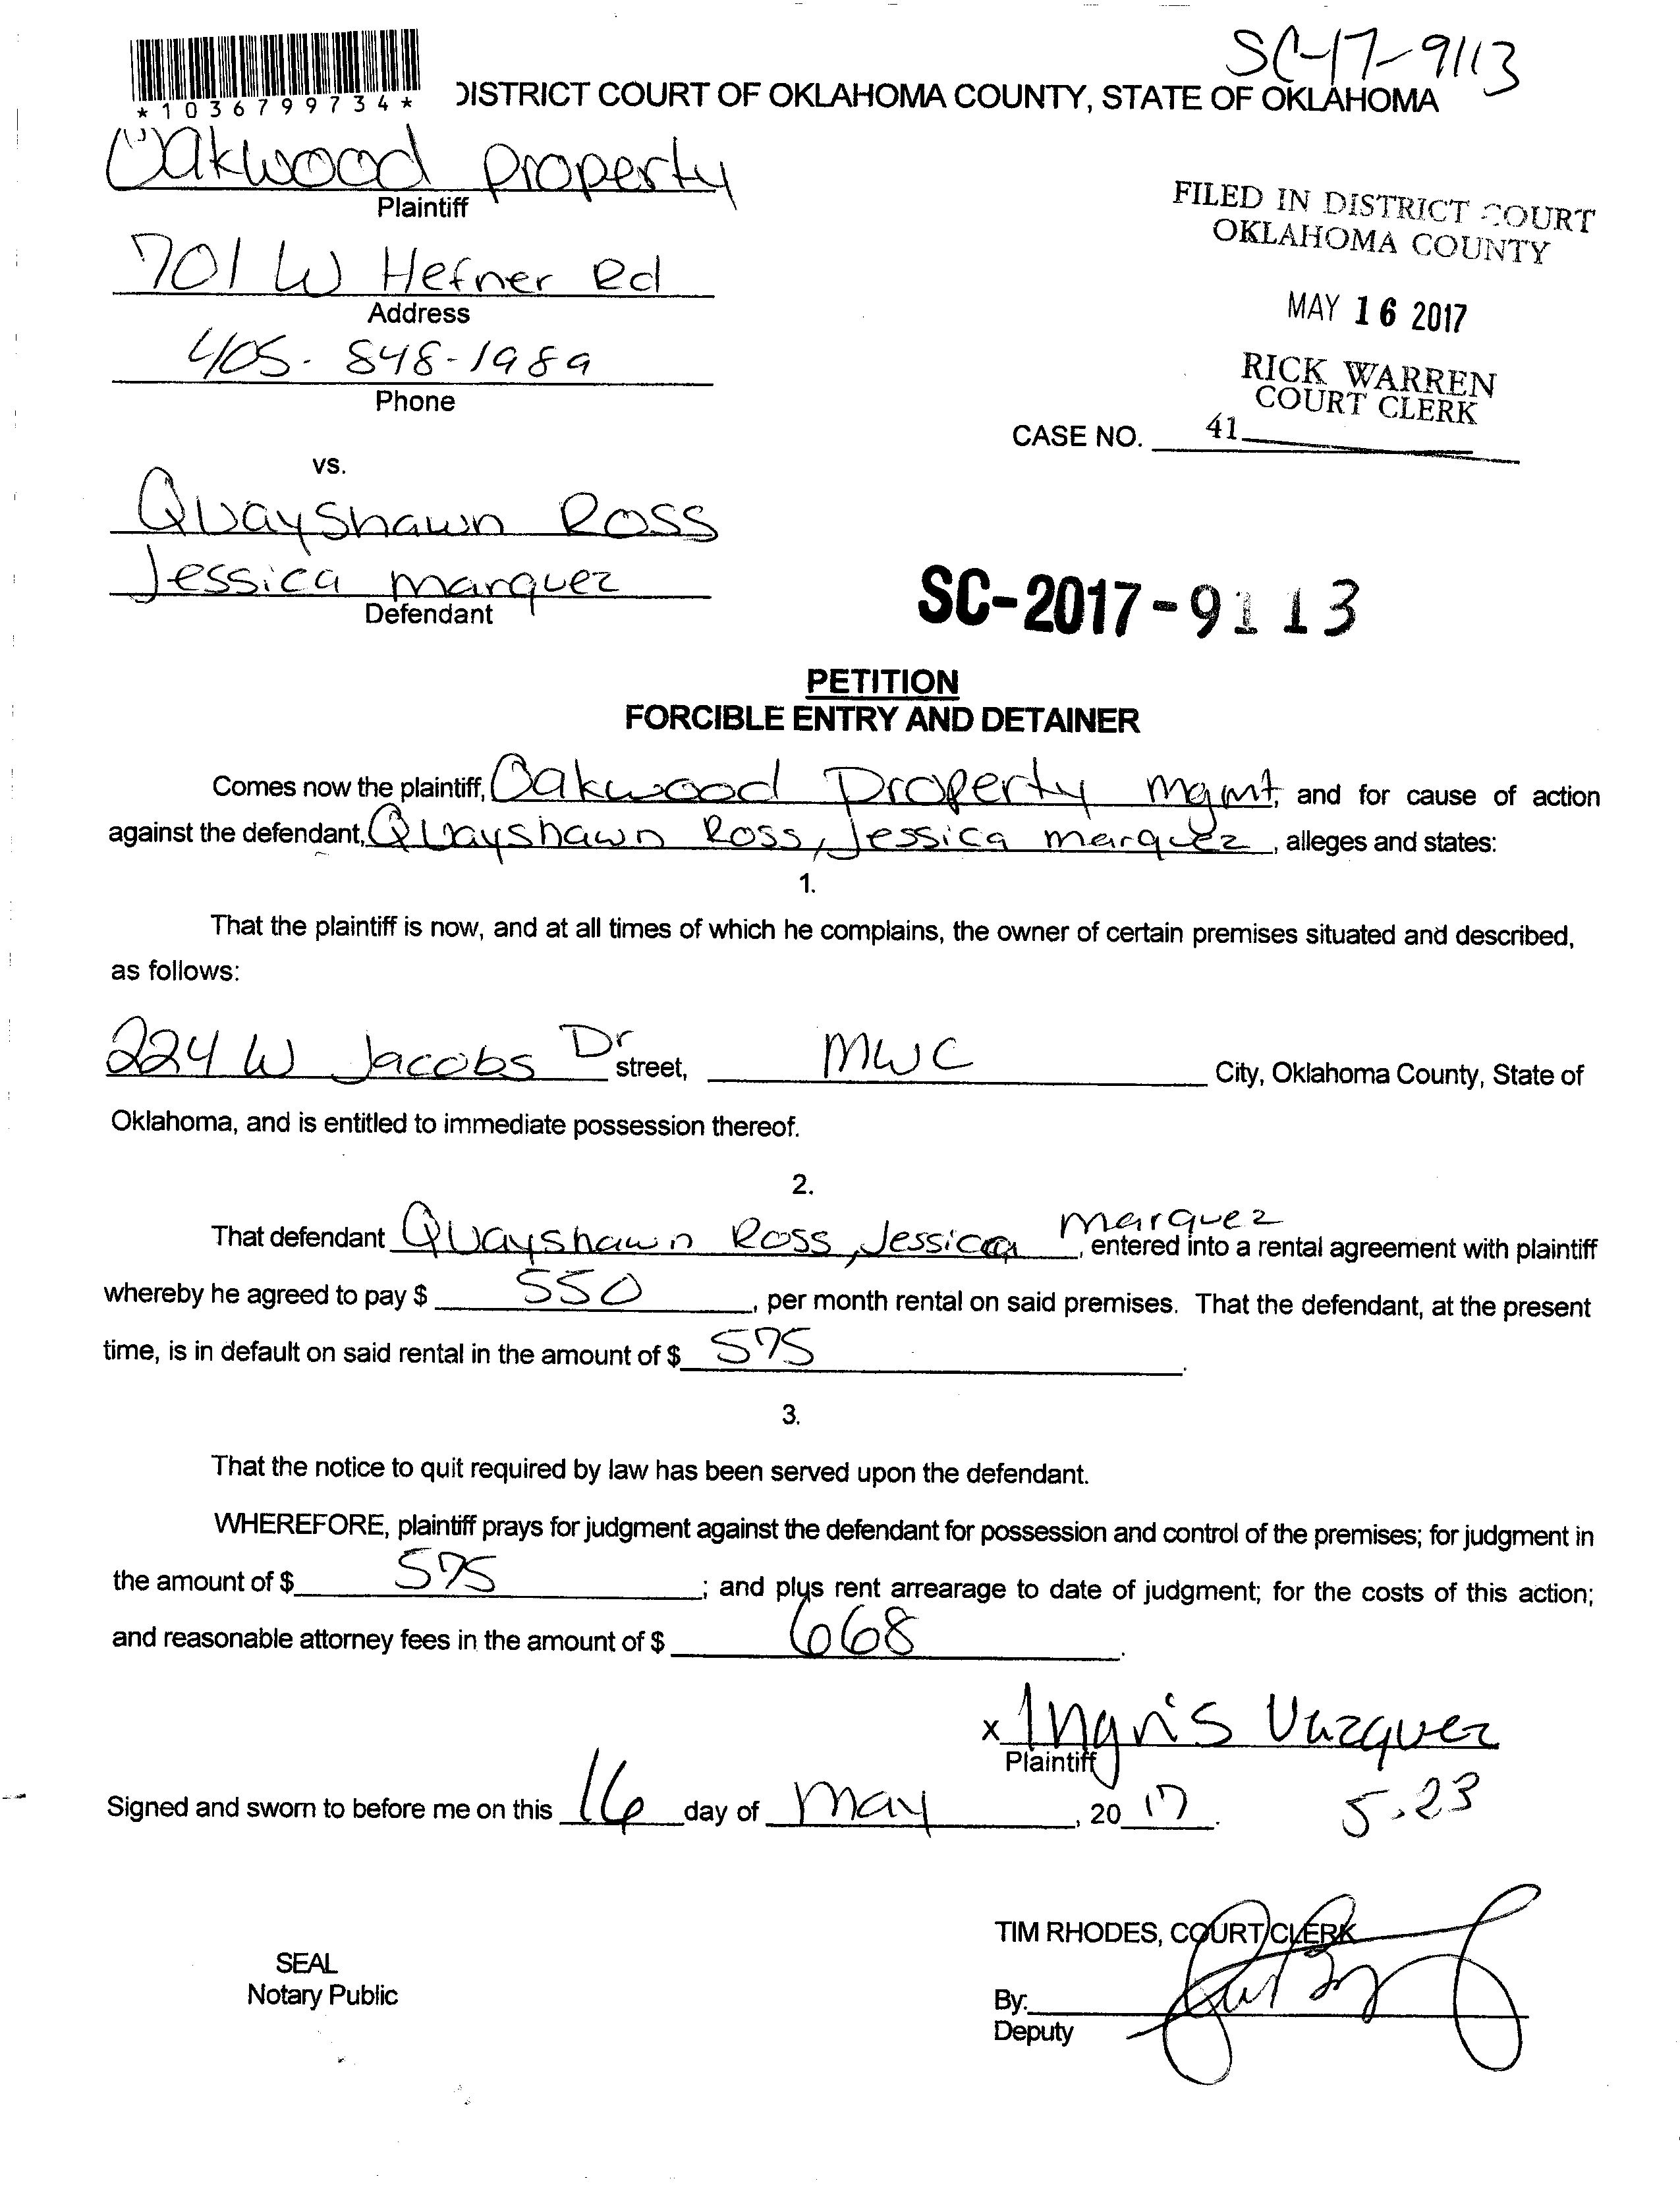 SC-17-9113
*1036799734*
DISTRICT COURT OF OKLAHOMA COUNTY, STATE OF OKLAHOMA
Oakwood Property
Plaintiff
FILED IN DISTRICT COURT
OKLAHOMA COUNTY
701 W Hefner Rd
Address
MAY 16 2017
405-848-1989
Phone
RICK WARREN
COURT CLERK
CASE NO. 41
vs.
Quayshawn Ross
Jessica marquez
Defendant
SC-2017-9113
PETITION
FORCIBLE ENTRY AND DETAINER
Comes now the plaintiff, Oakwood Property mgmt, and for cause of action
against the defendant, Quayshawn Ross, Jessica marquez, alleges and states:
1.
That the plaintiff is now, and at all times of which he complains, the owner of certain premises situated and described,
as follows:
224 W Jacobs Dr street, MWC City, Oklahoma County, State of
Oklahoma, and is entitled to immediate possession thereof.
2.
That defendant Quayshawn Ross, Jessica marquez, entered into a rental agreement with plaintiff
whereby he agreed to pay $ 550, per month rental on said premises. That the defendant, at the present
time, is in default on said rental in the amount of $ 575.
3.
That the notice to quit required by law has been served upon the defendant.
WHEREFORE, plaintiff prays for judgment against the defendant for possession and control of the premises; for judgment in
the amount of $ 575; and plus rent arrearage to date of judgment; for the costs of this action;
and reasonable attorney fees in the amount of $ 668.
x Ingris Vazquez
Plaintiff
Signed and sworn to before me on this 16 day of may, 20 17. 5.23
TIM RHODES, COURT CLERK
SEAL
Notary Public
By:
Deputy